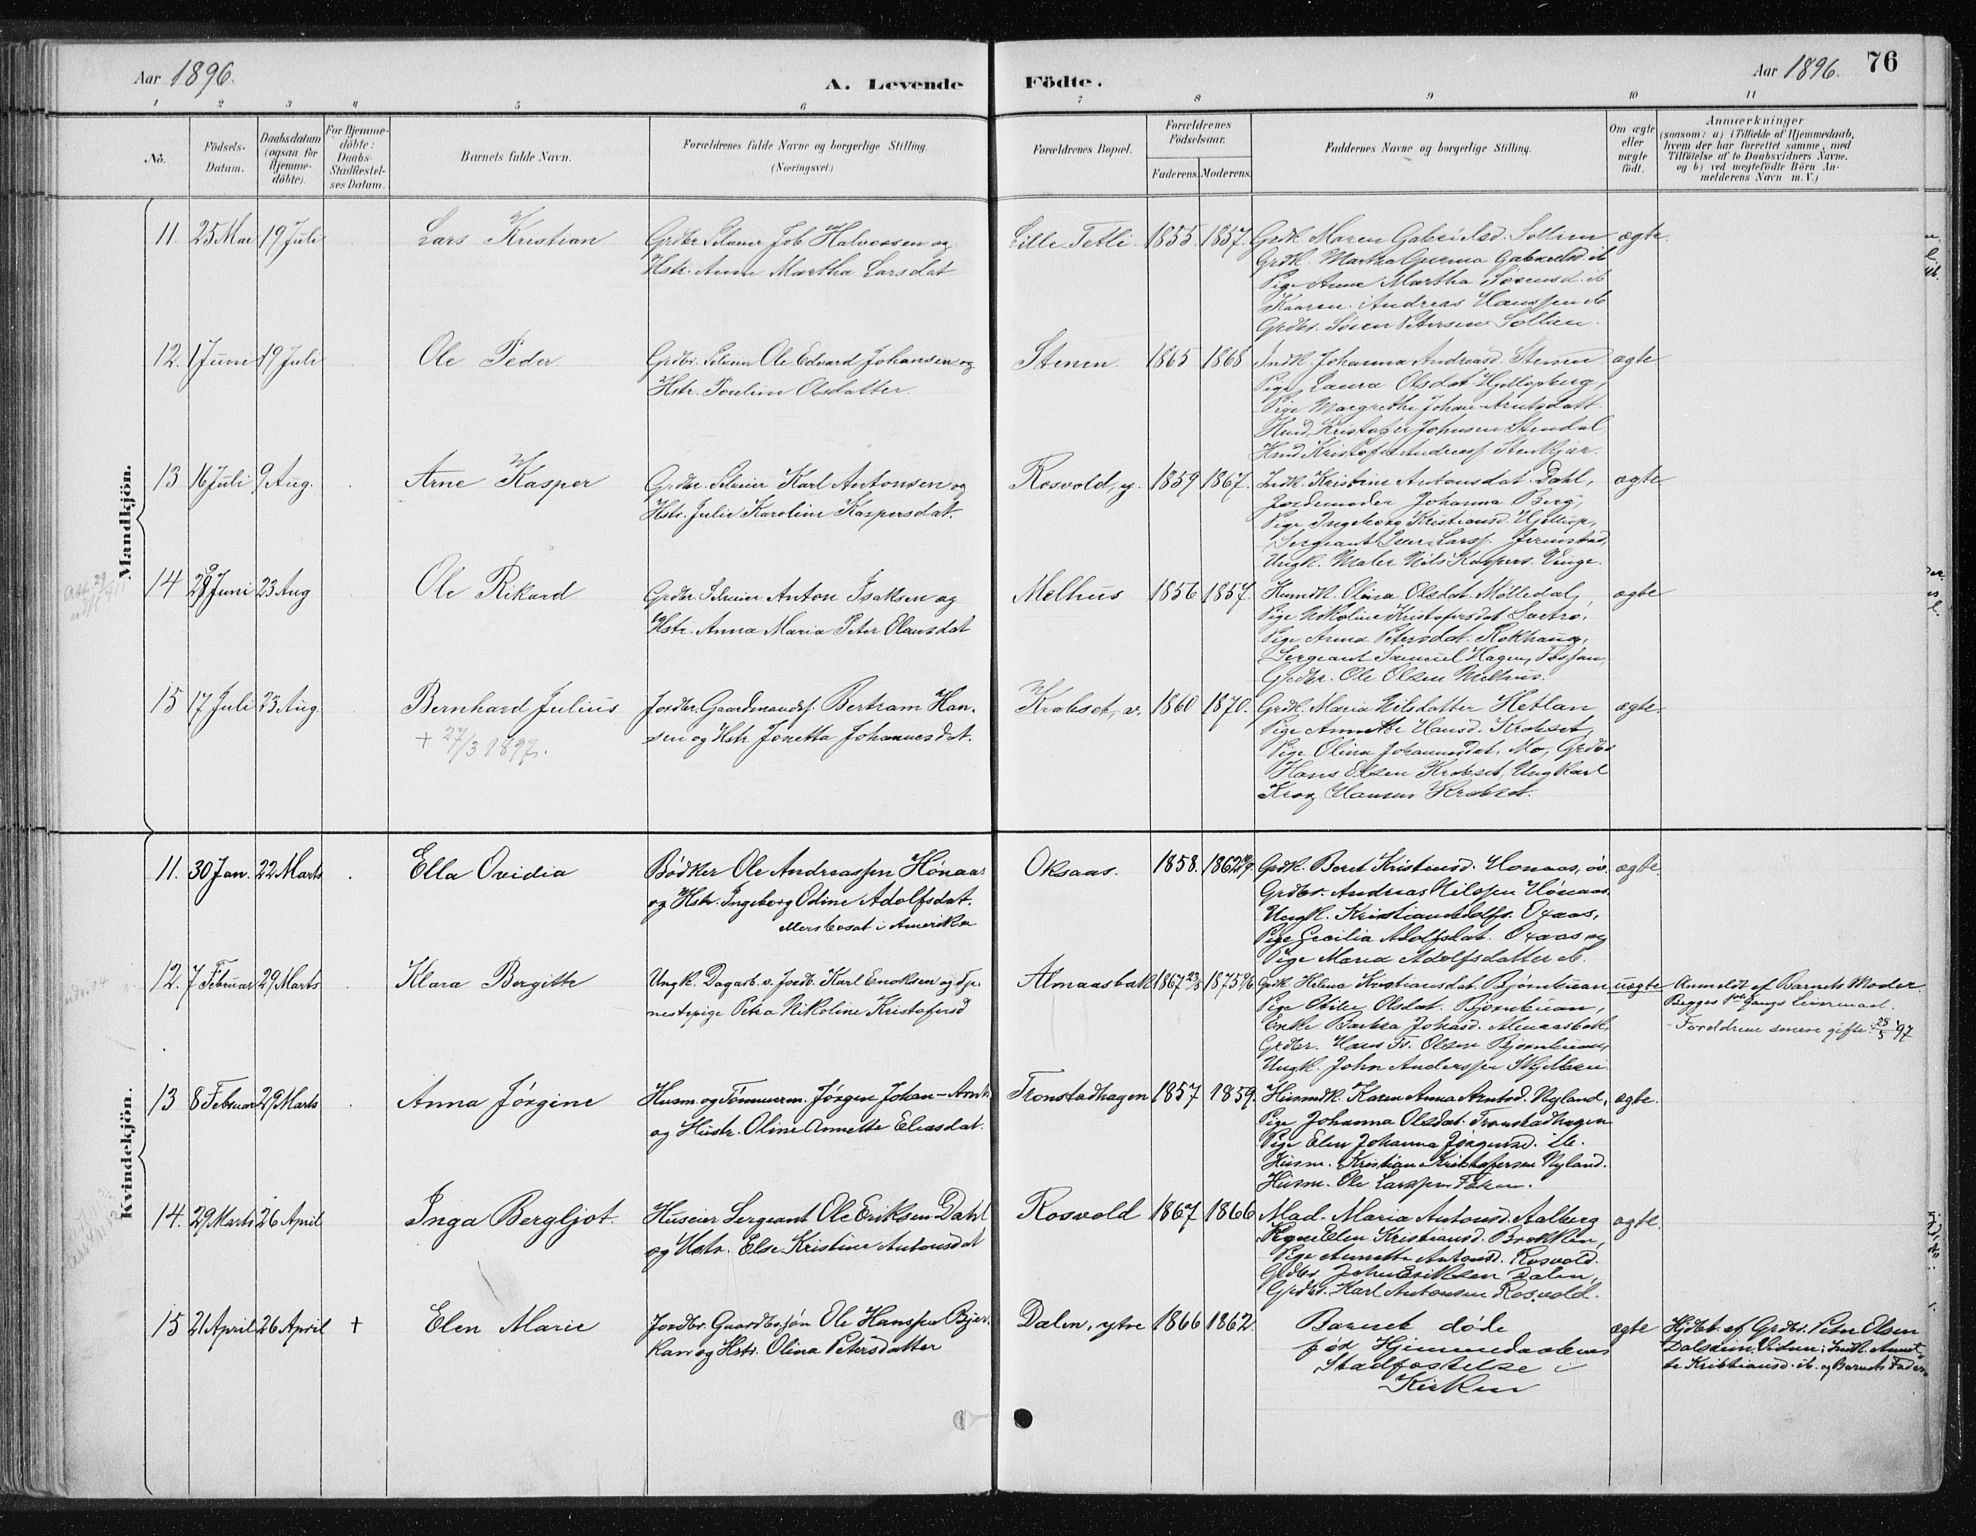 Aar 1896.
A. Levende
Födte.
Aar 1896. 76
1 2 3 4 5 6 7 8 9 10 11
No.
Födsels-
Datum.
Daabsdatum
(ogsaa for
Hjemme-
döbte).
For Hjemme-
döbte:
Daabs-
Stadfæstel-
ses Datum.
Barnets fulde Navn.
Forældrenes fulde Navne og borgerlige Stilling.
(Næringsvei.)
Forældrenes Bopæl.
Forældrenes
Födselsaar.
Faderens. Moderens.
Faddernes Navne og borgerlige Stilling.
Om ægte
eller
uægte
födt.
Anmærkninger
(saasom: a) i Tilfælde af Hjemmedaab,
hvem der har forrettet samme, med
Tilföielse af to Daabsvidners Navne,
og b) ved uægtefödte Börn An-
melderens Navn m. V.)
Mandkjön.
11. 25 Mai 19 Juli Lars Kristian
Grdbr. Selveier Job Halvorsen og
Hstr. Anne Martha Larsdat
Lille Tetli. 1855 1857.
Grdk. Maren Gabrielsd. Sollien
Grdk. Martha Gurina Gabrielsd. ib
Pige Anne Martha Sørensd. ib
Andreas Hanssen ib
Grdbr. Søren Petersen Sollien.
ægte.
12. 1 Juni 19 Juli Ole Peder
Grdbr. Selveier Ole Edvard Johansen og
Hstr. Pauline Olsdatter.
Stenen. 1865 1868
Indk. Johanna Andreasd. Stenen
Pige Laura Olsdat.
Pige Margrethe Johan-Arntsdatt.
Kristofer Johnsen Stendal
Kristofer Andreass. Stenkjær.
ægte
13 16 Juli 9 Aug. Arne Kasper
Grdbr. Selveier Karl Antonsen og
Hstr. Julie Karoline Kaspersdat.
Rosvold, y. 1859 1867.
Indk. Kristine Antonsdat. Dahl,
Jordemoder Johanna Berg,
Pige Ingeborg Kristiansd.
Sergeant Iver Larss.
Ungk. Maler Nils Kaspers. Vinge.
ægte
14 28 Juni 23 Aug Ole Rikard
Grdbr. Selveier Anton Isaksen og
Hstr. Anna Maria Peter Olausdat
Melhus 1856 1857.
Husmdk. Olina Olsdat. Mølledal,
Pige Nikoline Kristofersdat
Pige Anna Petersdat. Kokhaug,
Sergeant Samuel Hagen,
Grdbr. Ole Olsen Melhus.
ægte
15 17 Juli 23 Aug. Bernhard Julius
+ 27/3 1897.
Jordbr. Gaardmands. Bertram Han-
sen og Hstr. Jonetta Johannesdat.
Krokset, v. 1860 1870.
Grdk. Maria Nilsdatter Hetlan
Pige Annette Hansd. Krokset,
Pige Olina Johannesdat. Mo, Grdbr
Hans Olsen Krokset, Ungkarl
Hansen Krokset.
ægte.
Kvindekjön.
11. 30 Jan. 22 Marts Ella Ovidia
Bødker Ole Andreassen Hónaas
og Hstr. Ingeborg Odine Adolfsdat.
bosat i Amerika
Oksaas. 1858. 1862
Grdk. Beret Kristensd. Honaas, öv.
Grdbr. Andreas Nilssen Hónaas
Ungk. Kristian Adolfs. Oxaas,
Pige Cecilia Adolfsdat. Oxaas og
Pige Maria Adolfsdatter ib.
ægte
12. 7 Februar 29 Marts Klara Bergitte
Ungk. Dagarb. v. Jordb. Karl Enoksen og Tje-
nestepige Petra Nikoline Kristofersd
Almaasbak 1867 23/5 1875
Grdk. Helena Kristiansdat. Bjørnbuan
Pige Otilie Olsdat. Bjørnbuan,
Enke Barbra Johnsd. Almaasbak,
Grdbr. Hans Fr. Olsen Bjørnbuan,
Ungk. John Anderssen
uægte
Anmeldt af Barnets Moder
Begges 1ste Gangs Leiermaal.
Forældrene senere gifte 28/5 97
13 8 Februar 29 Marts Anna Jörgine
Husm. og Tømmerm. Jörgen Johan-Arnts
og Hustr. Oline Annette Eliasdat.
Tronstadhagen 1857 1859.
Husmdk. Karen Anna Arntsd. Nyland,
Pige Johanna Olsdat. Tronstadhagen
Pige Elen Johanna Jörgensd. ib.
Husm. Kristian Kristofersen Nyland.
Husm. Ole Larssen
ægte.
14. 29 Marts 26 April Inga Bergljot.
Huseier Sergeant Ole Eriksen Dahl
og Hstr. Else Kristine Antonsdat
Rosvold 1867 1866
Mad. Maria Antonsd. Aalberg
Pige Elen Kristiansd.
Pige Annette Antonsd. Rosvold.
Grdbr. John Eriksen Dalen,
Grdbr. Karl Antonsen Rosvold.
ægte
15 21 April 26 April + Elen Marie
Jordbr. Gaardbrsøn Ole Hanssen Bjer-
kan og Hstr. Olina Petersdatter
Dalen, ytre 1866 1862.
Barnet døde
før Hjemmedaabens
Stadfæstelse i
Kirken
ægte
Hjdöbt. af Grdbr. Peter Olsen
Dalseim. Vidner: Indk. Annet-
te Kristiansd. ib. og Barnets Fader.